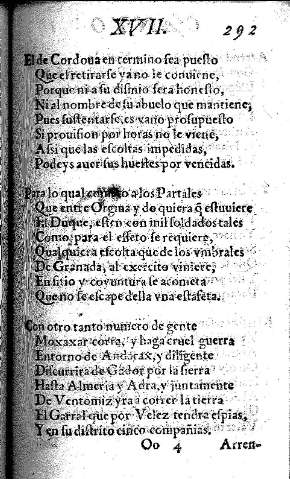 XVII. 292
El de Cordoua en termino sea puesto
Que el retirarse ya no le conuiene,
Porque ni a su disinio sera honesto,
Ni al nombre de su abuelo que mantiene,
Pues sustentarse, es vano prosupuesto
Si prouision por horas no le viene,
Assi que las escoltas impedidas,
Podeys auer sus huestes por vencidas.
Para lo qual a los Partales
Que entre Orgiua y do quiera q̃ estuuiere
El Duque, esten con mil soldados tales
Como, para el effeto se requiere,
Qualquiera escolta que de los vmbrales
De Granada, al exercito viniere,
En sitio y coyuntura se acometa
Que no se escape della vna estafeta.
Con otro tanto numero de gente
Moxaxar corra, y haga cruel guerra
Entorno de Andarax, y diligente
Discurrira de Gador por la sierra
Hasta Almeria y Adra, y juntamente
De Ventomiz yra a correr la tierra
El Garral que por Velez tendra espias,
Y en su distrito cinco compañias.
Oo 4 Arren-